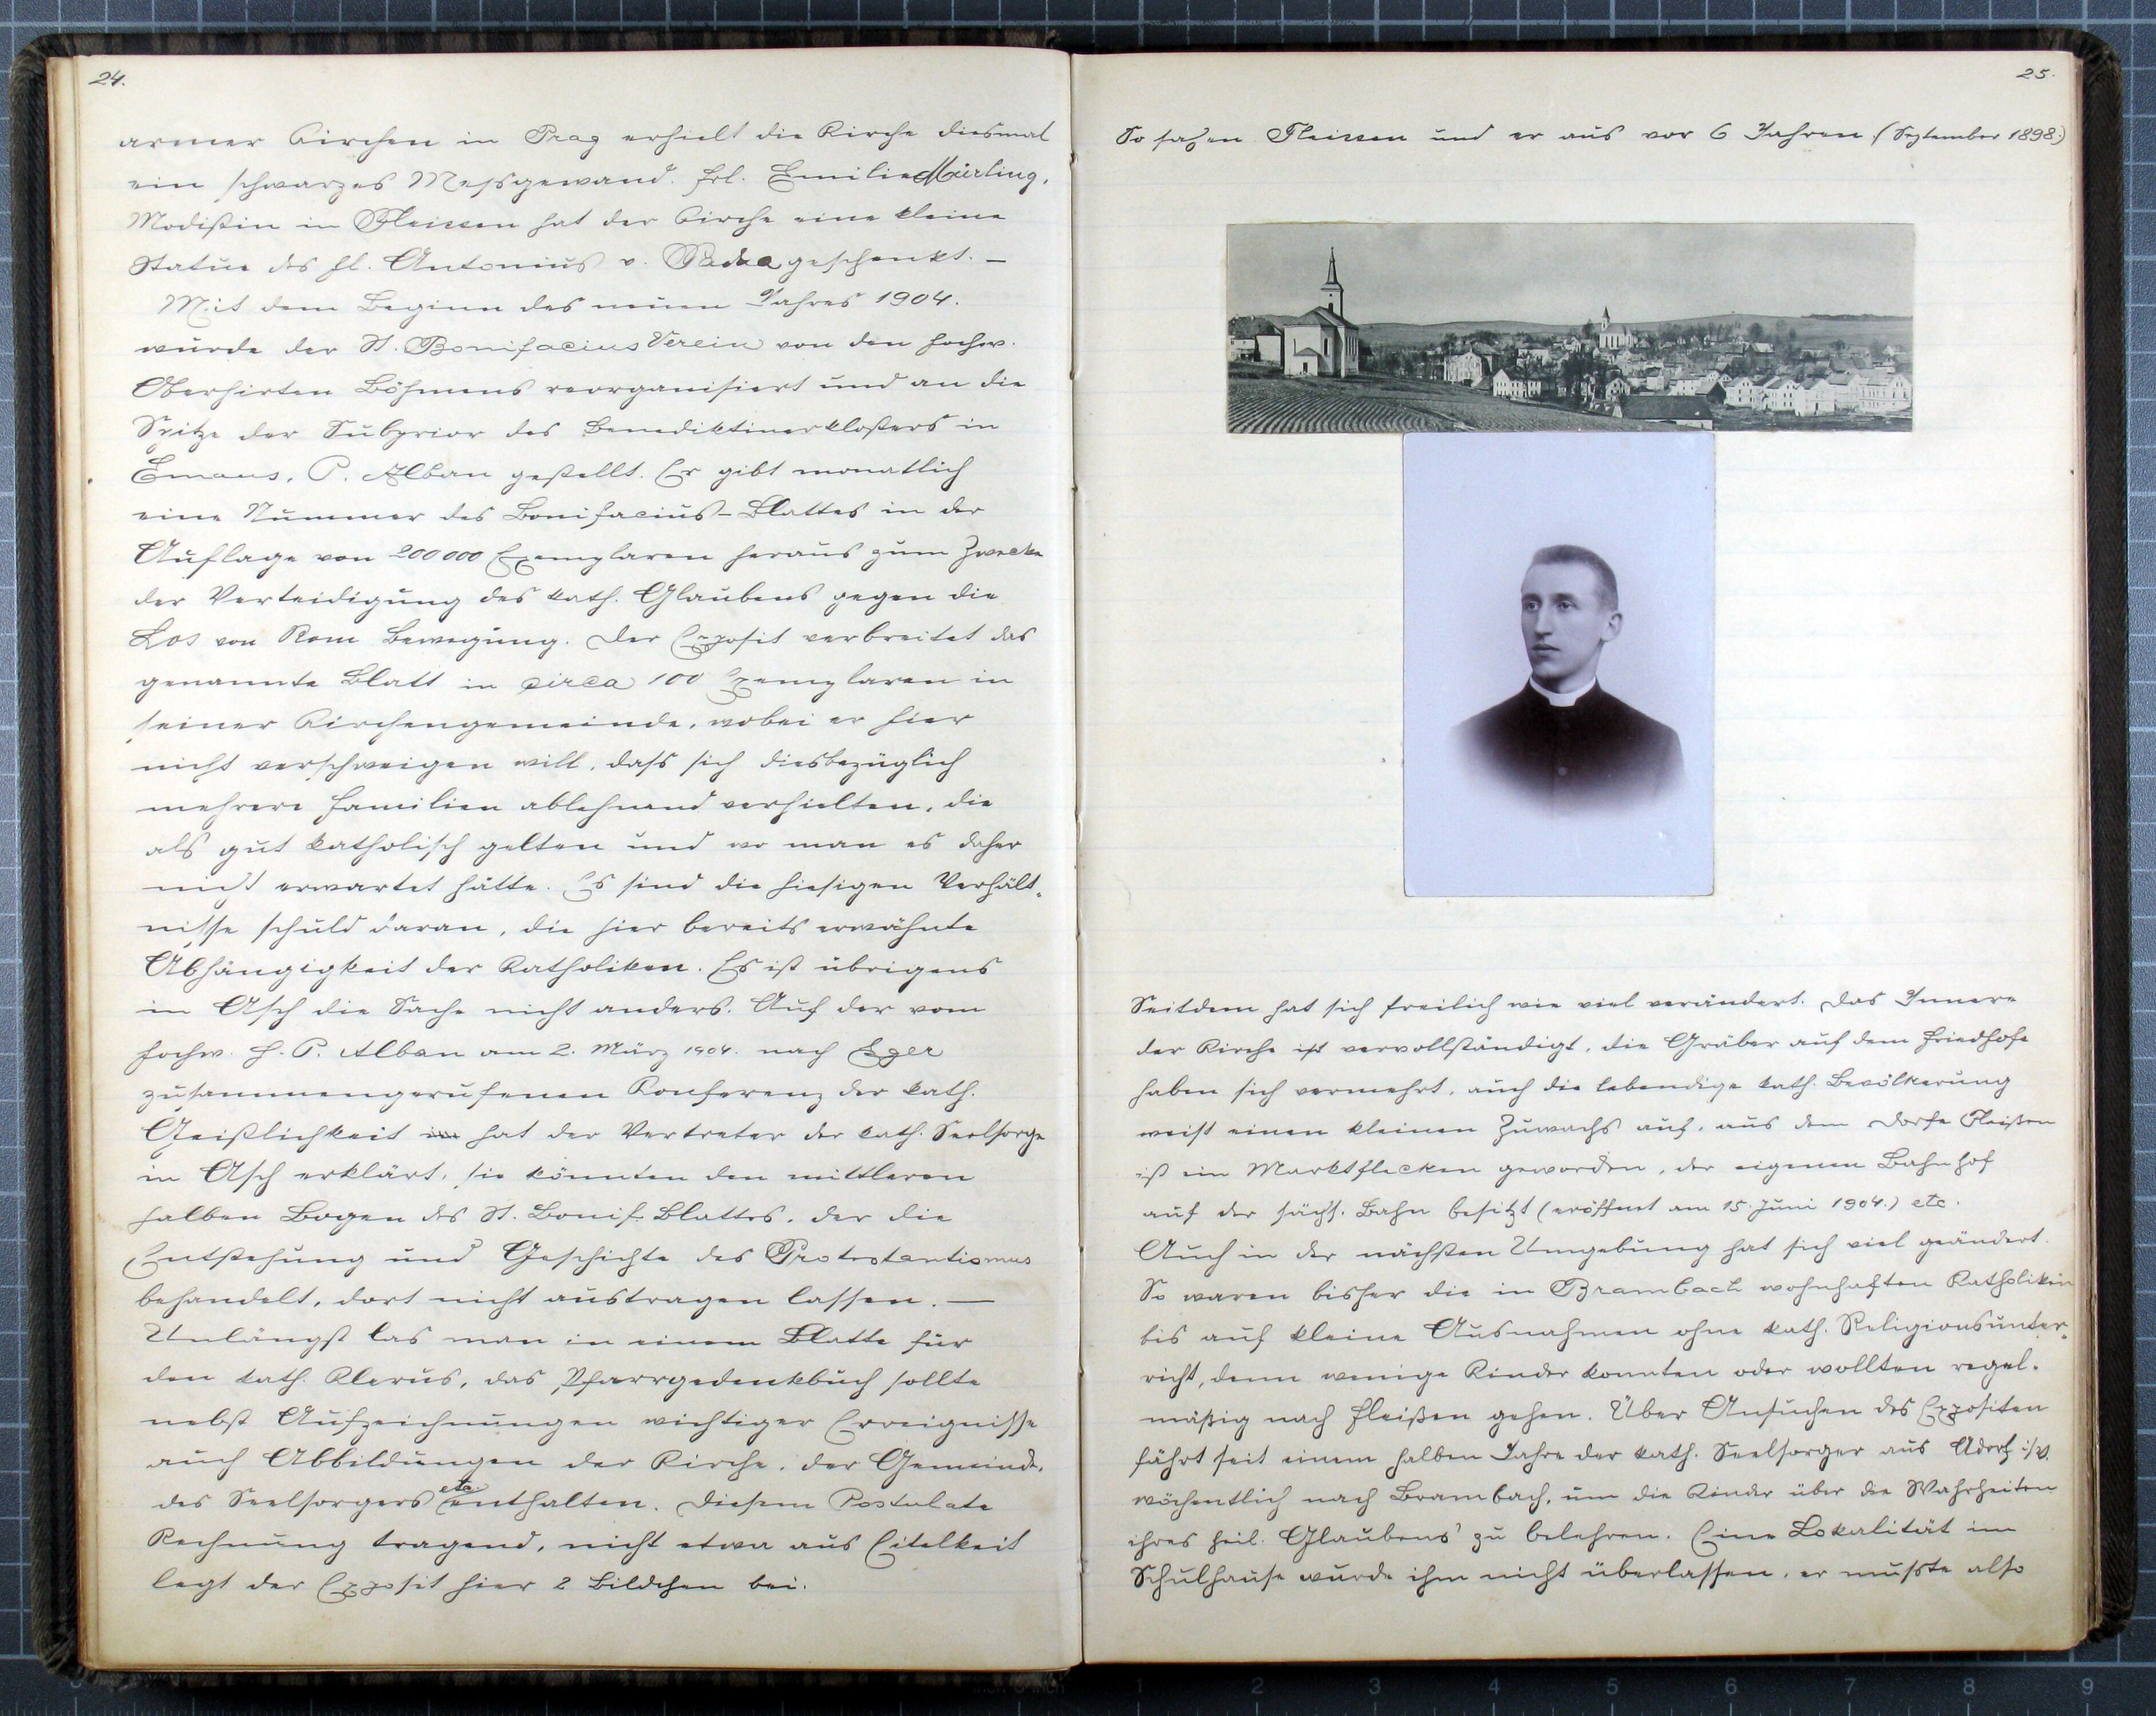 24.
armer Kirchen in Prag erhielt die Kirche diesmal
ein schwarzes Messgewand. Frl. Emilie Mürling,
Modistin in Fleissen hat der Kirche eine kleine
Statue des hl. Antonius v. Padua geschenkt. —
Mit dem Beginn des neuen Jahres 1904.
wurde der St. Bonifacius Verein von den hochw.
Oberhirten Böhmens reorganisiert und an die
Spitze der Subprior des Benediktinerklosters in
Emaus, P. Alban gestellt. Er gibt monatlich
eine Nummer des Bonifacius-Blattes in der
Auflage von 200 000 Exemplaren heraus zum Zwecke
der Verteidigung des kath. Glaubens gegen die
Los von Rom Bewegung. Der Exposit verbreitet das
genannte Blatt in circa 100 Exemplaren in
seiner Kirchengemeinde, wobei er hier
nicht verschweigen will, dass sich diesbezüglich
mehrere Familien ablehnend verhielten, die
als gut katholisch gelten und wo man es daher
nicht erwartet hätte. Es sind die hiesigen Verhält-
nisse schuld daran, die hier bereits erwähnte
Abhängigkeit der Katholiken. Es ist übrigens
in Asch die Sache nicht anders. Auf der vom
hochw. H. P. Alban am 2. März 1904. nach Eger
zusammengerufenen Konferenz der kath.
Geistlichkeit hat der Vertreter der kath. Seelsorge
in Asch erklärt, sie könnten den mittleren
halben Bogen des St. Bonif. Blattes, der die
Entstehung und Geschichte des Protestantismus
behandelt, dort nicht austragen lassen. —
Unlängst las man in einem Blatte für
den kath. Klerus, das Pfarrgedenkbuch sollte
nebst Aufzeichnungen wichtiger Ereignisse
auch Abbildungen der Kirche, der Gemeinde,
des Seelsorgers etc enthalten. Diesem Postulate
Rechnung tragend, nicht etwa aus Eitelkeit
legt der Exposit hier 2 Bildchen bei.
25.
So sahen Fleissen und er aus vor 6 Jahren. (September 1898.)
Seitdem hat sich freilich wie viel verändert. Das Innere
der Kirche ist vervollständigt, die Gräber auf dem Friedhofe
haben sich vermehrt, auch die lebendige kath. Bevölkerung
weist einen kleinen Zuwachs auf, aus dem Dorfe Fleißen
ist ein Marktflecken geworden, der eigenen Bahnhof
auf der sächs. Bahn besitzt (eröffnet am 15. Juni 1904.) etc.
Auch in der nächsten Umgebung hat sich viel geändert.
So waren bisher die in Brambach wohnhaften Katholiken
bis auf kleine Ausnahmen ohne kath. Religionsunter-
richt, denn wenige Kinder konnten oder wollten regel-
mäßig nach Fleißen gehen. Über Ansuchen des Expositen
fährt seit einem halben Jahre der kath. Seelsorger aus Adorf i/V.
wöchentlich nach Brambach, um die Kinder über die Wahrheiten
ihres heil. Glaubens zu belehren. Eine Lokalität im
Schulhause wurde ihm nicht überlassen, er musste also
1 2 3 4 5 6 7 8 9